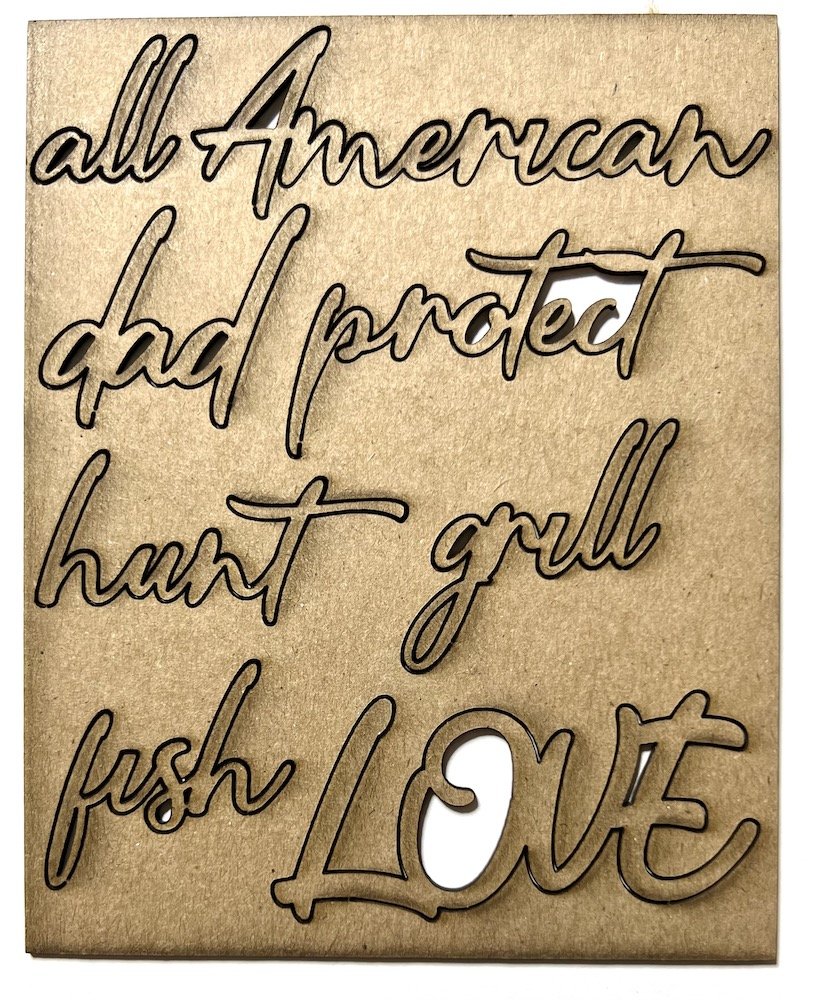 all American
dad protect
hunt grill
fish LOVE